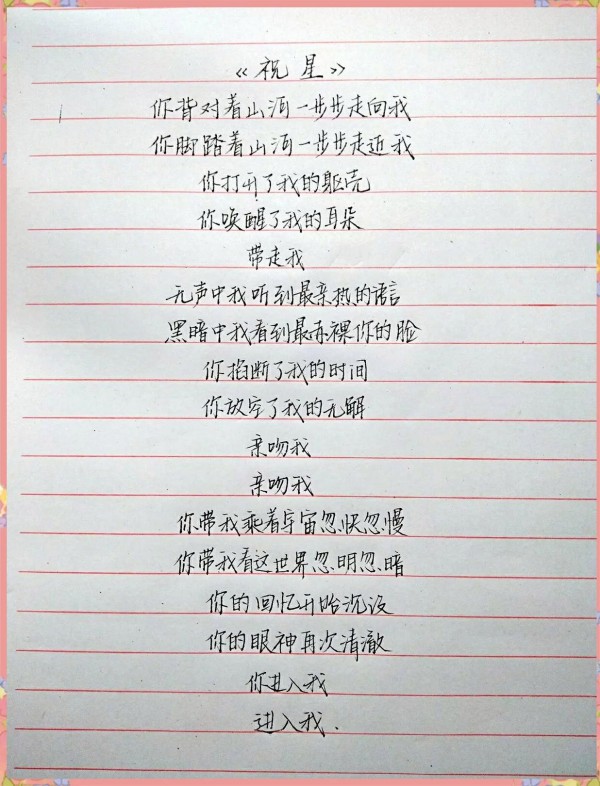 《祝星》
你背对着山河一步步走向我
你脚踏着山河一步步走近我
你打开了我的躯壳
你唤醒了我的耳朵
带走我
无声中我听到最亲热的语言
黑暗中我看到最赤裸你的脸
你掐断了我的时间
你放空了我的无解
亲吻我
亲吻我
你带我乘着宇宙忽快忽慢
你带我看这世界忽明忽暗
你的回忆开始沉没
你的眼神再次清澈
你进入我
进入我.